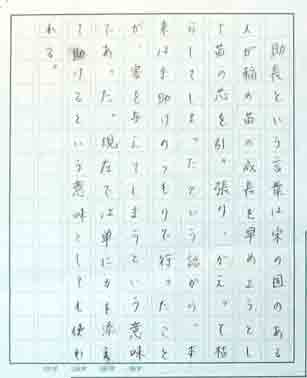 助長という言葉は宋の国のある
人が稲の苗の成長を早めようとし
て苗の芯を引っ張り、かえって枯
らしてしまったという話から、本
来は、助けるつもりで行ったこと
が、害を与えてしまうという意味
であった。現在では単に力を添え
て助けるという意味としても使わ
れる。